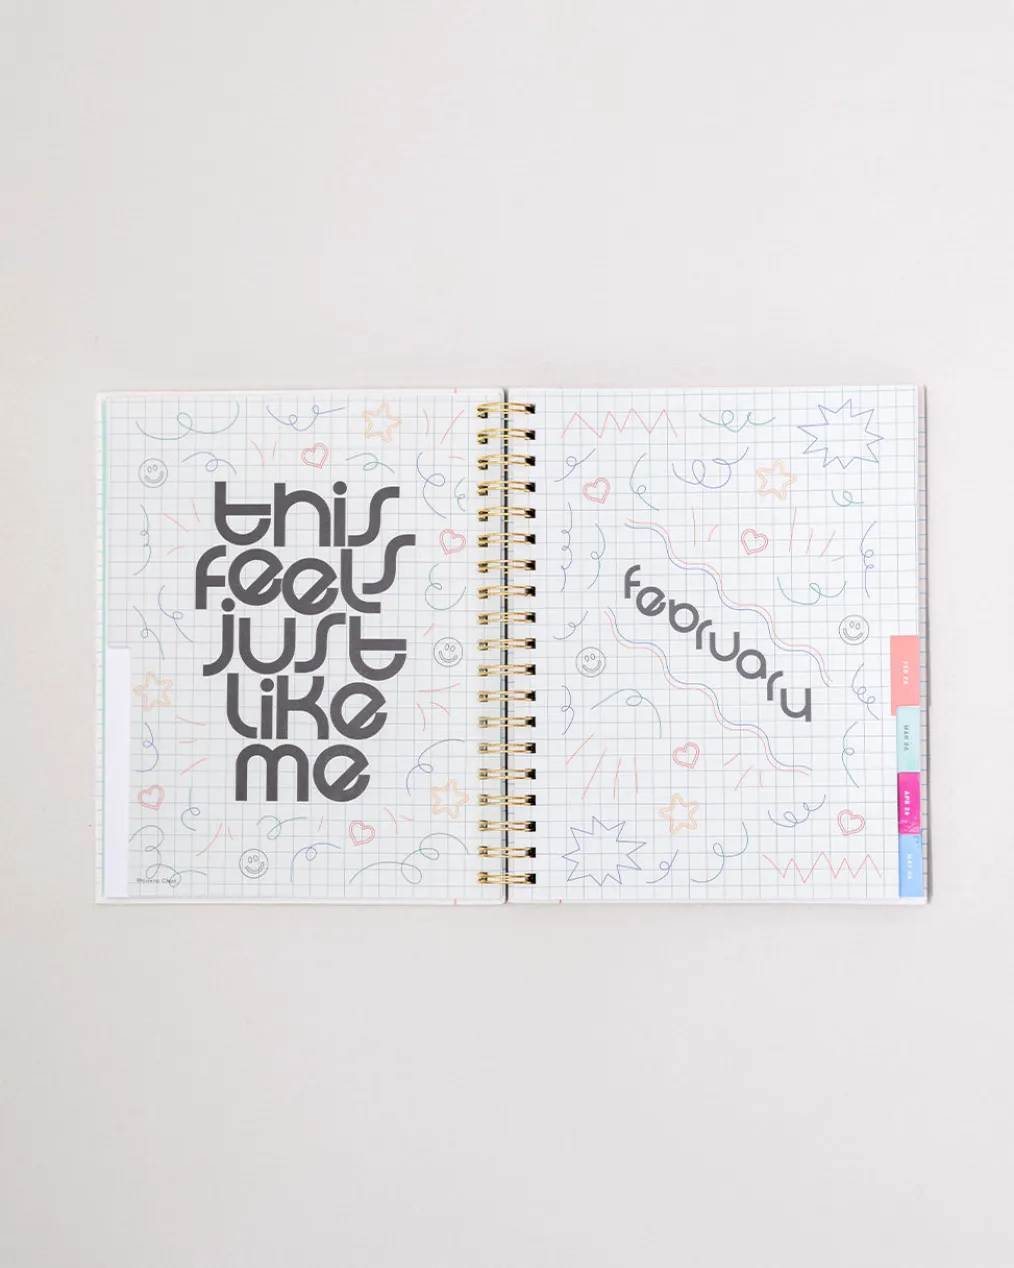 this
feels
just
like
me
february
FEB 26
MAR 26
APR 26